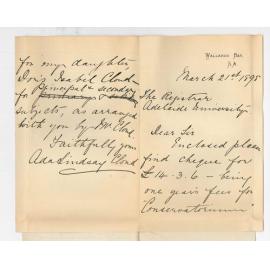 WALLAROO BAY,
S.A.
March 21st 1898
The Registrar
Adelaide University
Dear Sir
Enclosed please
find cheque for
£14-3.6 - being
one year's fees for
Conservatorium
for my daughter
Doris Isabel Cloud
for Principal & secondary
subjects, as arranged
with you by Mr Cloud.
Faithfully yours
Ada Lindsay Cloud